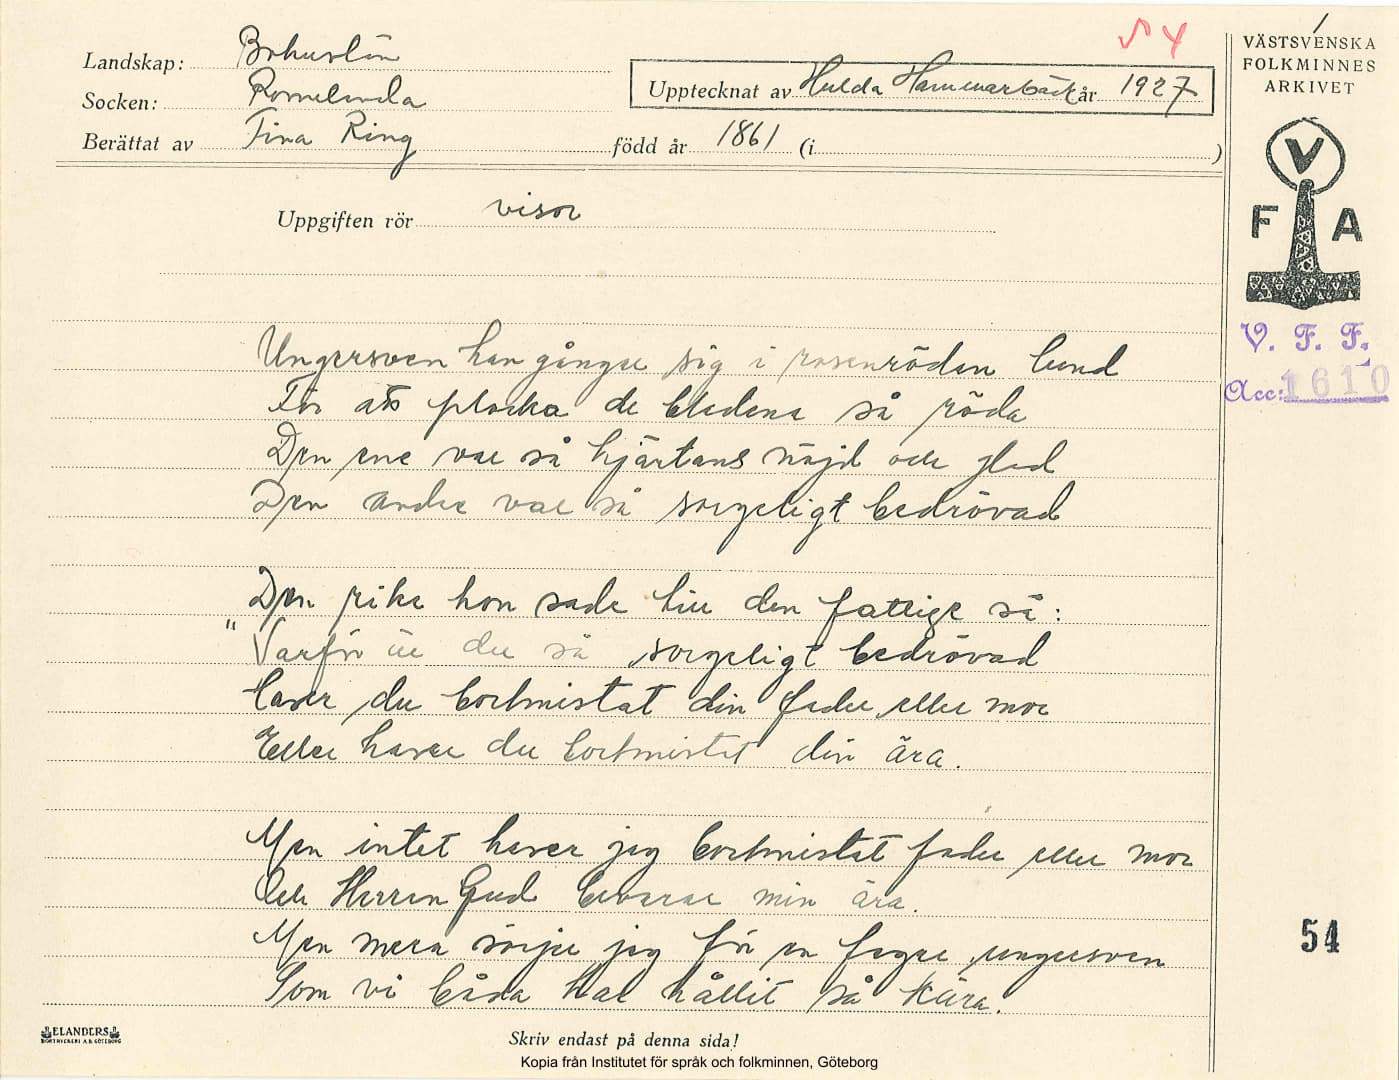 54
Landskap: Bohuslän
Socken: Romelanda
Upptecknat av Hulda Hammarbäck år 1927
Berättat av Tina Ring född år 1861 (i )
VÄSTSVENSKA
FOLKMINNES
ARKIVET
V
F A
V. F. F.
Acc: 1610
Uppgiften rör visor
Ungersven han gångar sig i rosenrödan lund
För att plocka de bladena så röda
Den ene var så hjärtans nöjd och glad
Den andre var så sorgeligt bedrövad
Den rike hon sade till den fattige så:
"Varför är du så sorgeligt bedrövad
haver du bortmistat din fader eller mor
Eller haver du bortmistat din ära.
Men intet haver jag bortmistat fader eller mor
Och Herren Gud bevarar min ära.
Men mera sörjer jag för en fager ungersven
Som vi båda har hållit så kära.
54
ELANDERS
BOKTRYCKERI A.B. GÖTEBORG
Skriv endast på denna sida!
Kopia från Institutet för språk och folkminnen, Göteborg